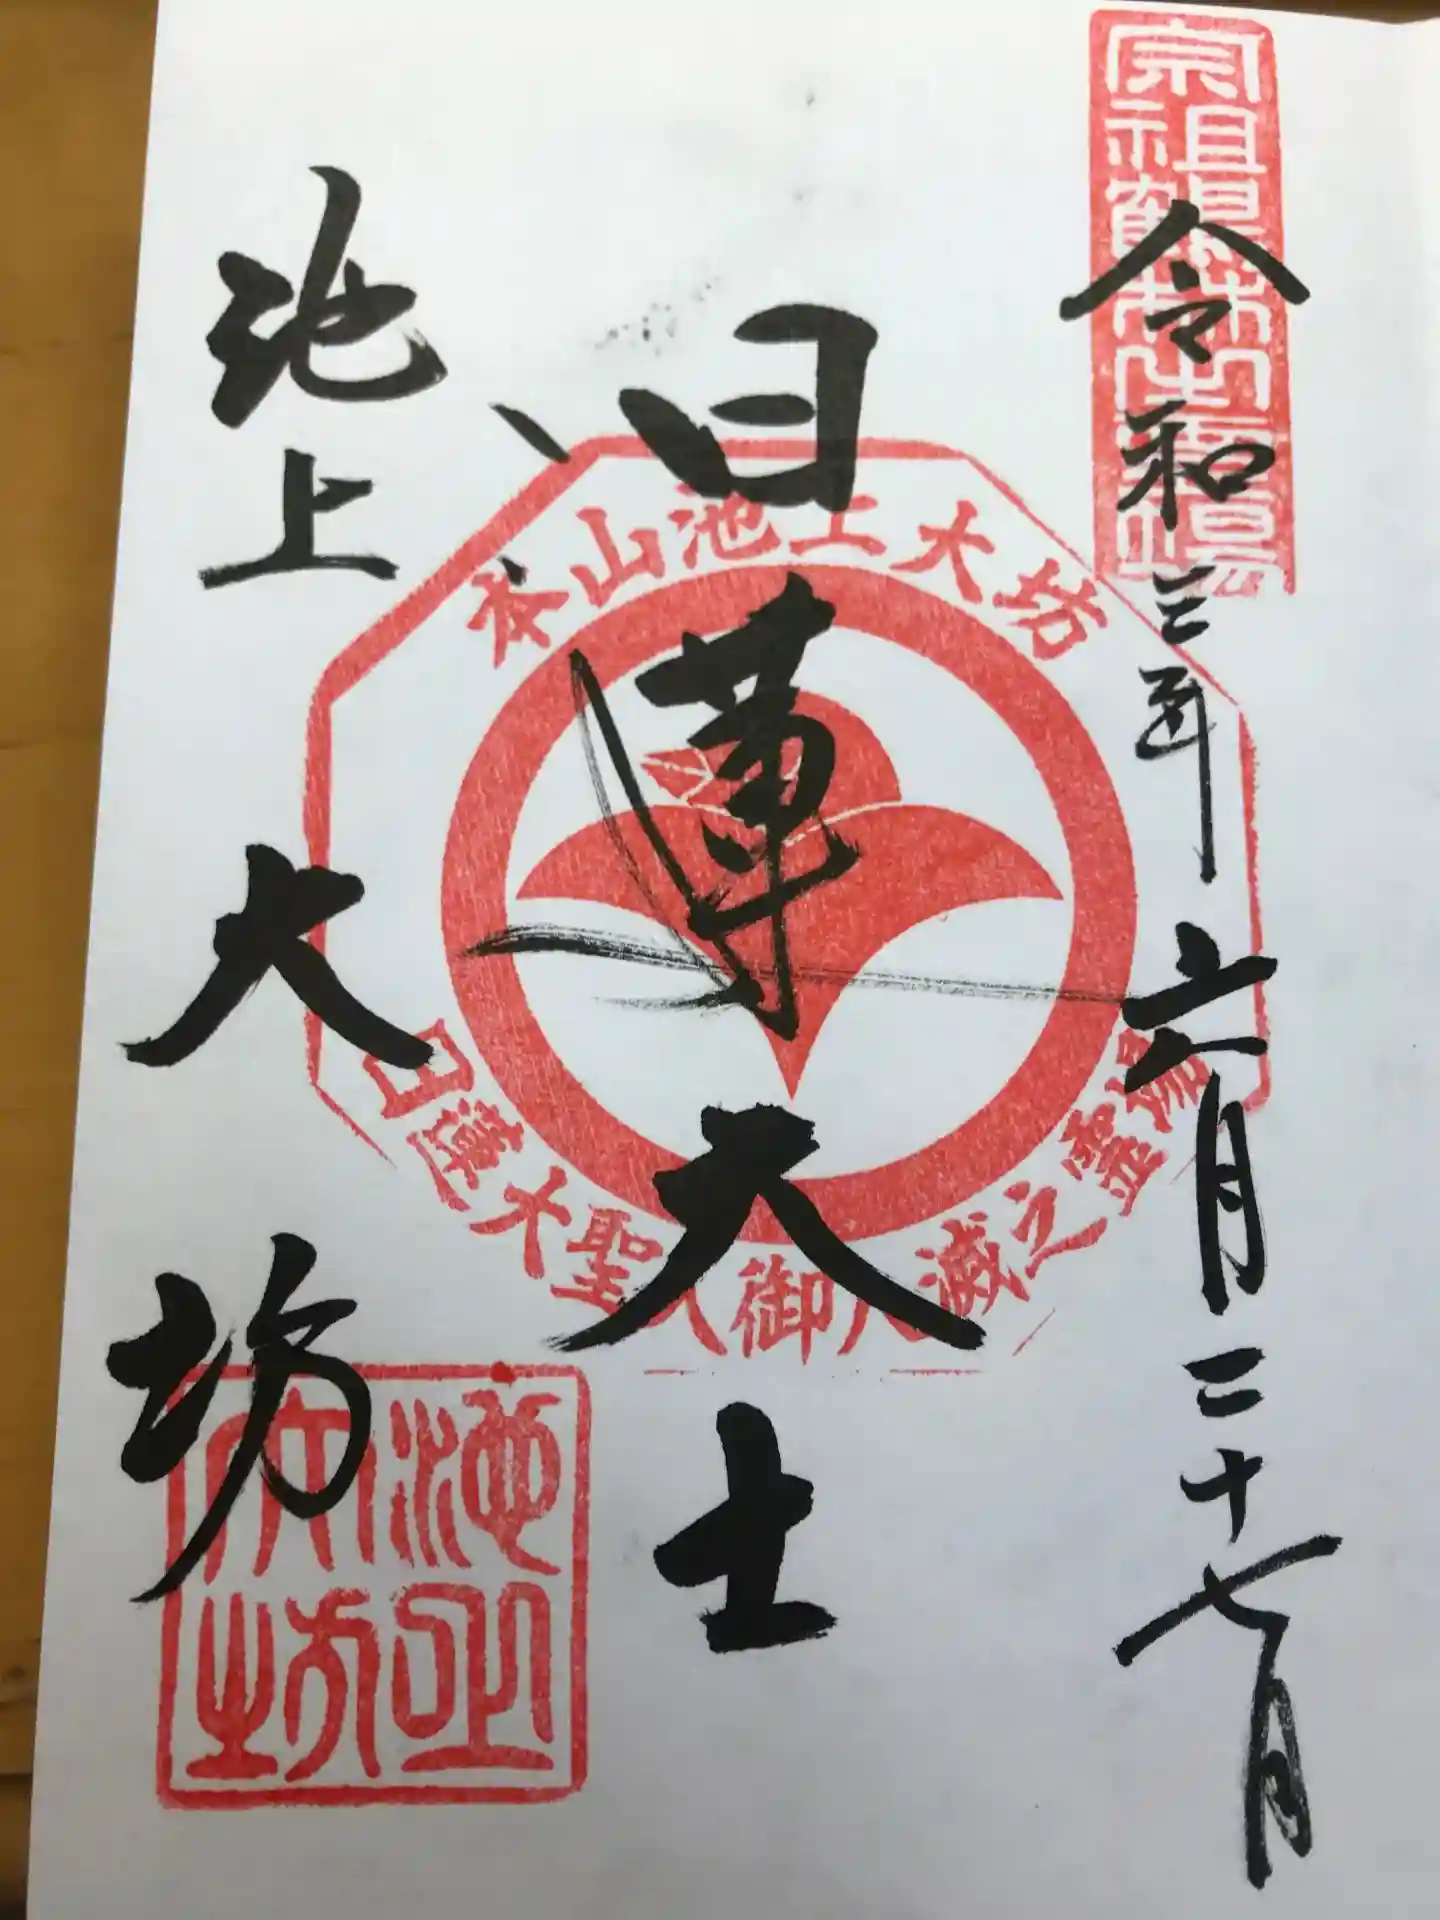 宗祖鶴林之霊場
令和三年六月二十七日
日蓮大士
本山池上大坊
日蓮大聖人御入滅之霊場
池上大坊
池上大坊